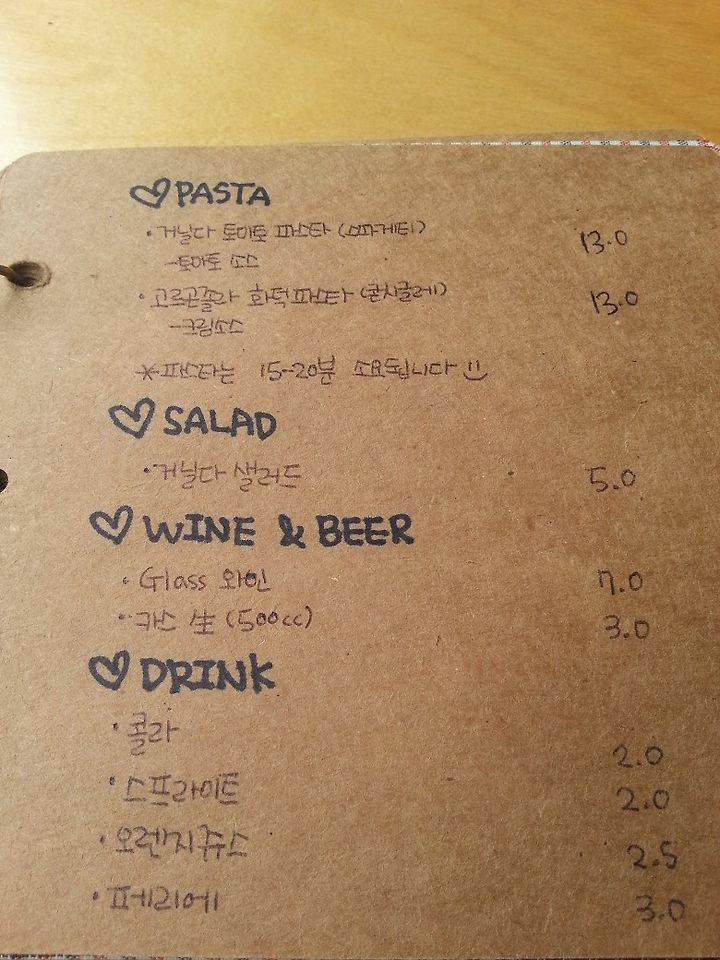 ♡ PASTA
· 거닐다 토마토 파스타 (스파게티) 13.0
- 토마토 소스
· 고르곤졸라 화덕파스타 (콘시글레) 13.0
- 크림소스
* 파스타는 15-20분 소요됩니다
♡ SALAD
· 거닐다 샐러드 5.0
♡ WINE & BEER
· Glass 와인 7.0
· 카스 生 (500cc) 3.0
♡ DRINK
· 콜라 2.0
· 스프라이트 2.0
· 오렌지쥬스 2.5
· 페리에 3.0